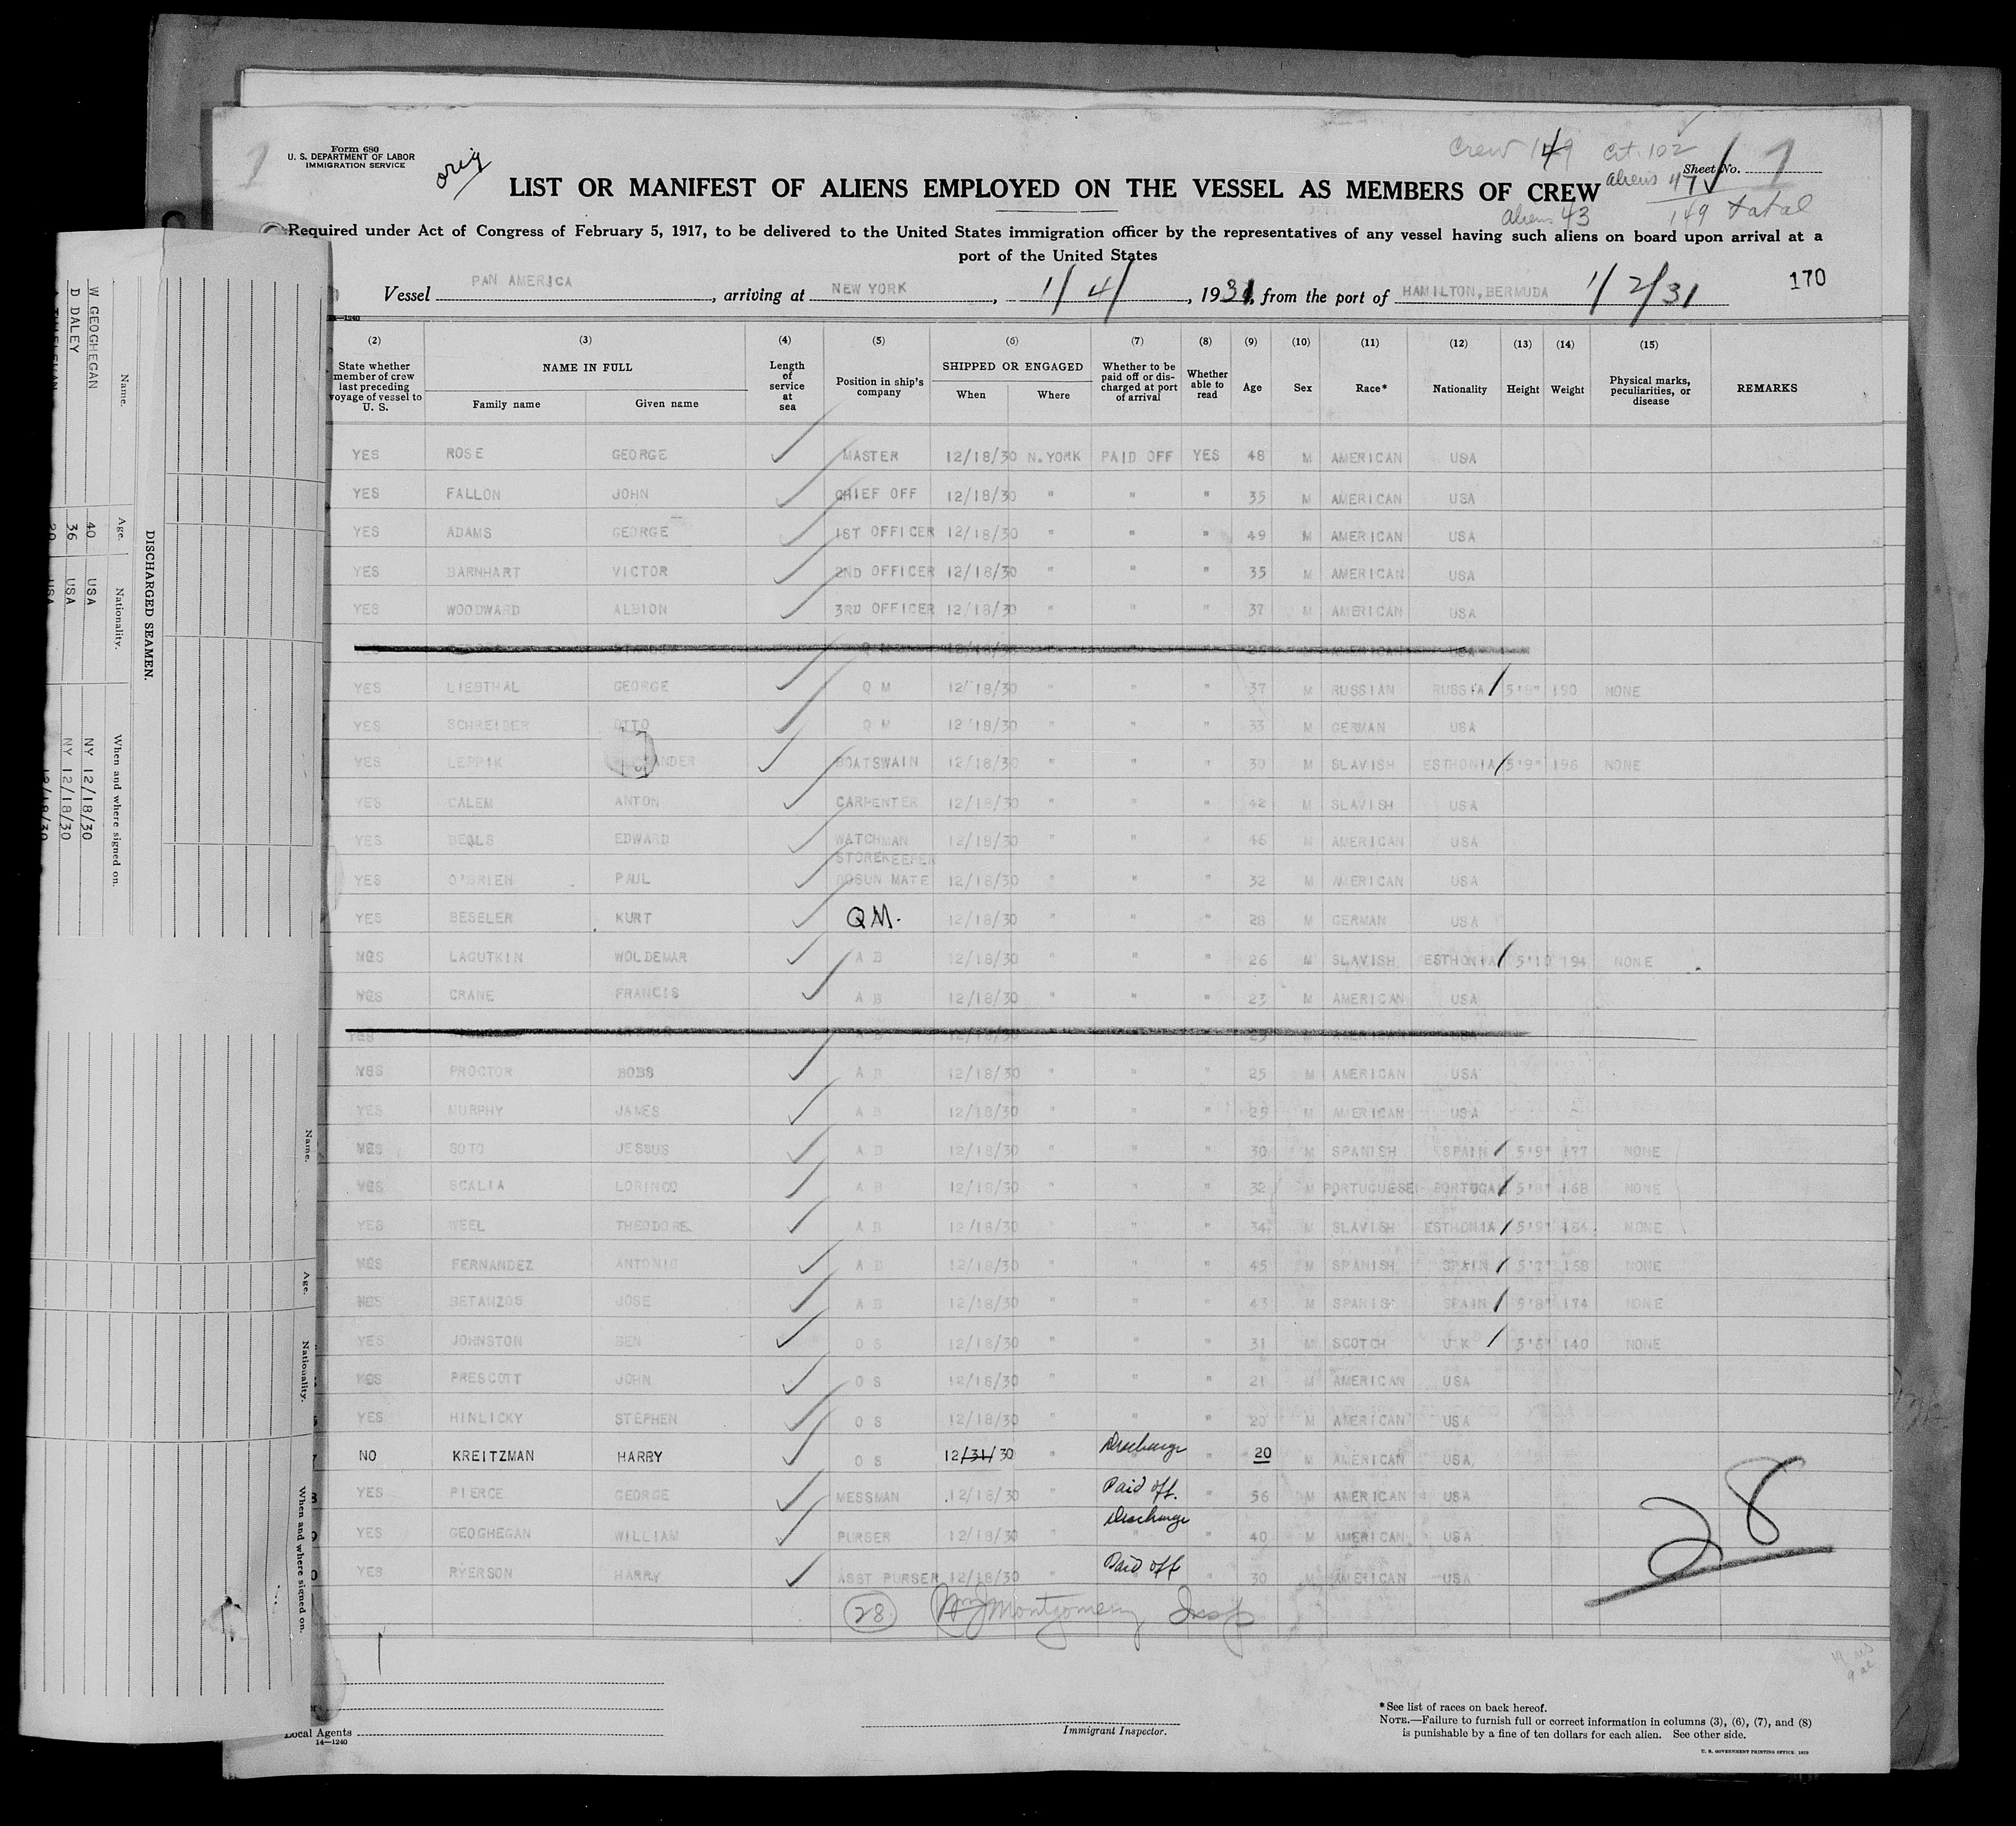 Form 680
U. S. DEPARTMENT OF LABOR
IMMIGRATION SERVICE
orig
1
Crew 149 Cit. 102
Sheet No. 1
aliens 47
LIST OR MANIFEST OF ALIENS EMPLOYED ON THE VESSEL AS MEMBERS OF CREW
aliens 43 149 total
Required under Act of Congress of February 5, 1917, to be delivered to the United States immigration officer by the representatives of any vessel having such aliens on board upon arrival at a
port of the United States
Vessel PAN AMERICA, arriving at NEW YORK, 1/4/, 1931, from the port of HAMILTON, BERMUDA 1/2/31 170
14—1240
(2) (3) (4) (5) (6) (7) (8) (9) (10) (11) (12) (13) (14) (15)
State whether member of crew last preceding voyage of vessel to U. S. NAME IN FULL Family name Given name Length of service at sea Position in ship's company SHIPPED OR ENGAGED When Where Whether to be paid off or discharged at port of arrival Whether able to read Age Sex Race* Nationality Height Weight Physical marks, peculiarities, or disease REMARKS
YES ROSE GEORGE MASTER 12/18/30 N.YORK PAID OFF YES 48 M AMERICAN USA
YES FALLON JOHN CHIEF OFF 12/18/30 " " " 35 M AMERICAN USA
YES ADAMS GEORGE 1ST OFFICER 12/18/30 " " " 49 M AMERICAN USA
YES BARNHART VICTOR 2ND OFFICER 12/18/30 " " " 35 M AMERICAN USA
YES WOODWARD ALBION 3RD OFFICER 12/18/30 " " " 37 M AMERICAN USA
YES LIESTHAL GEORGE Q M 12/18/30 " " " 37 M RUSSIAN RUSSIA 5'8" 190 NONE
YES SCHREIBER OTTO Q M 12/18/30 " " " 33 M GERMAN USA
YES LEPPIK ANDER BOATSWAIN 12/18/30 " " " 30 M SLAVISH ESTHONIA 5'9" 196 NONE
YES CALEM ANTON CARPENTER 12/18/30 " " " 42 M SLAVISH USA
YES BEALS EDWARD WATCHMAN 12/18/30 " " " 46 M AMERICAN USA
STOREKEEPER
YES O'BRIEN PAUL BOSUN MATE 12/18/30 " " " 32 M AMERICAN USA
YES BESELER KURT QM. 12/18/30 " " " 28 M GERMAN USA
LAGUTKIN WOLDEMAR A B 12/18/30 " " " 26 M SLAVISH ESTHONIA 5'10 194 NONE
CRANE FRANCIS A B 12/18/30 " " " 23 M AMERICAN USA
YES A B 12/18/30 M AMERICAN USA
PROCTOR BOBS A B 12/18/30 " " " 25 M AMERICAN USA
YES MURPHY JAMES A B 12/18/30 " " " 25 M AMERICAN USA
SOTO JESSUS A B 12/18/30 " " " 30 M SPANISH SPAIN 5'9" 177 NONE
SCALIA LORINCO A B 12/18/30 " " " 32 M PORTUGUESE PORTUGAL 5'8" 168 NONE
YES WEEL THEODORE A B 12/18/30 " " " 34 M SLAVISH ESTHONIA 5'9" 184 NONE
FERNANDEZ ANTONIO A B 12/18/30 " " " 45 M SPANISH SPAIN 168 NONE
BETANZOS JOSE A B 12/18/30 " " " 43 M SPANISH SPAIN 5'8" 174 NONE
YES JOHNSTON BEN O S 12/18/30 " " " 31 M SCOTCH U K 5'6" 140 NONE
PRESCOTT JOHN O S 12/18/30 " " " 21 M AMERICAN USA
YES HINLICKY STEPHEN O S 12/18/30 " " " 20 M AMERICAN USA
NO KREITZMAN HARRY O S 12/31/30 " Discharge " 20 M AMERICAN USA
YES PIERCE GEORGE MESSMAN 12/18/30 " Paid off. " 56 M AMERICAN USA
YES GEOGHEGAN WILLIAM PURSER 12/18/30 " Discharge " 40 M AMERICAN USA
YES RYERSON HARRY ASST PURSER 12/18/30 " Paid off " 30 M AMERICAN USA
28
28 Montgomery Insp
Local Agents
14—1240
Immigrant Inspector.
*See list of races on back hereof.
NOTE.—Failure to furnish full or correct information in columns (3), (6), (7), and (8)
is punishable by a fine of ten dollars for each alien. See other side.
U. S. GOVERNMENT PRINTING OFFICE: 1929
DISCHARGED SEAMEN.
Name. Age. Nationality. When and where signed on.
W GEOGHEGAN 40 USA NY 12/18/30
D DALEY 36 USA NY 12/18/30
USA 12/18/30
Name. Age. Nationality. When and where signed on.